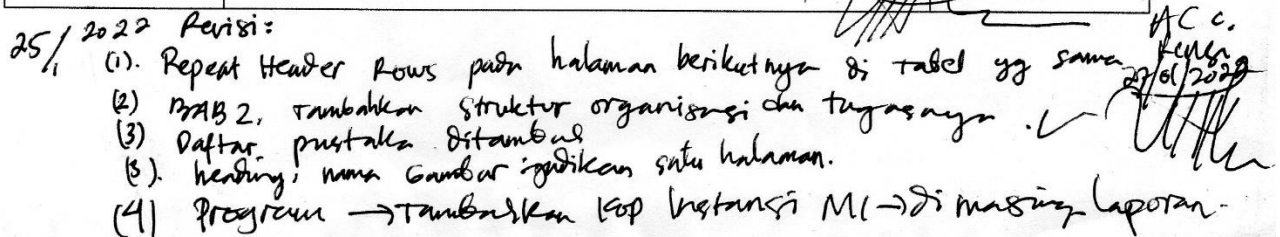 25/1 2022 Revisi:
(1). Repeat Header Rows pada halaman berikutnya di tabel yg sama
(2) BAB 2, Tambahkan struktur organisasi dan tugasnya.
(3) Daftar pustaka ditambah
(3). heading, nama Gambar jadikan satu halaman.
(4) Program → Tambahkan Kop Instansi MI → di masing laporan.
ACC.
27/01/2022